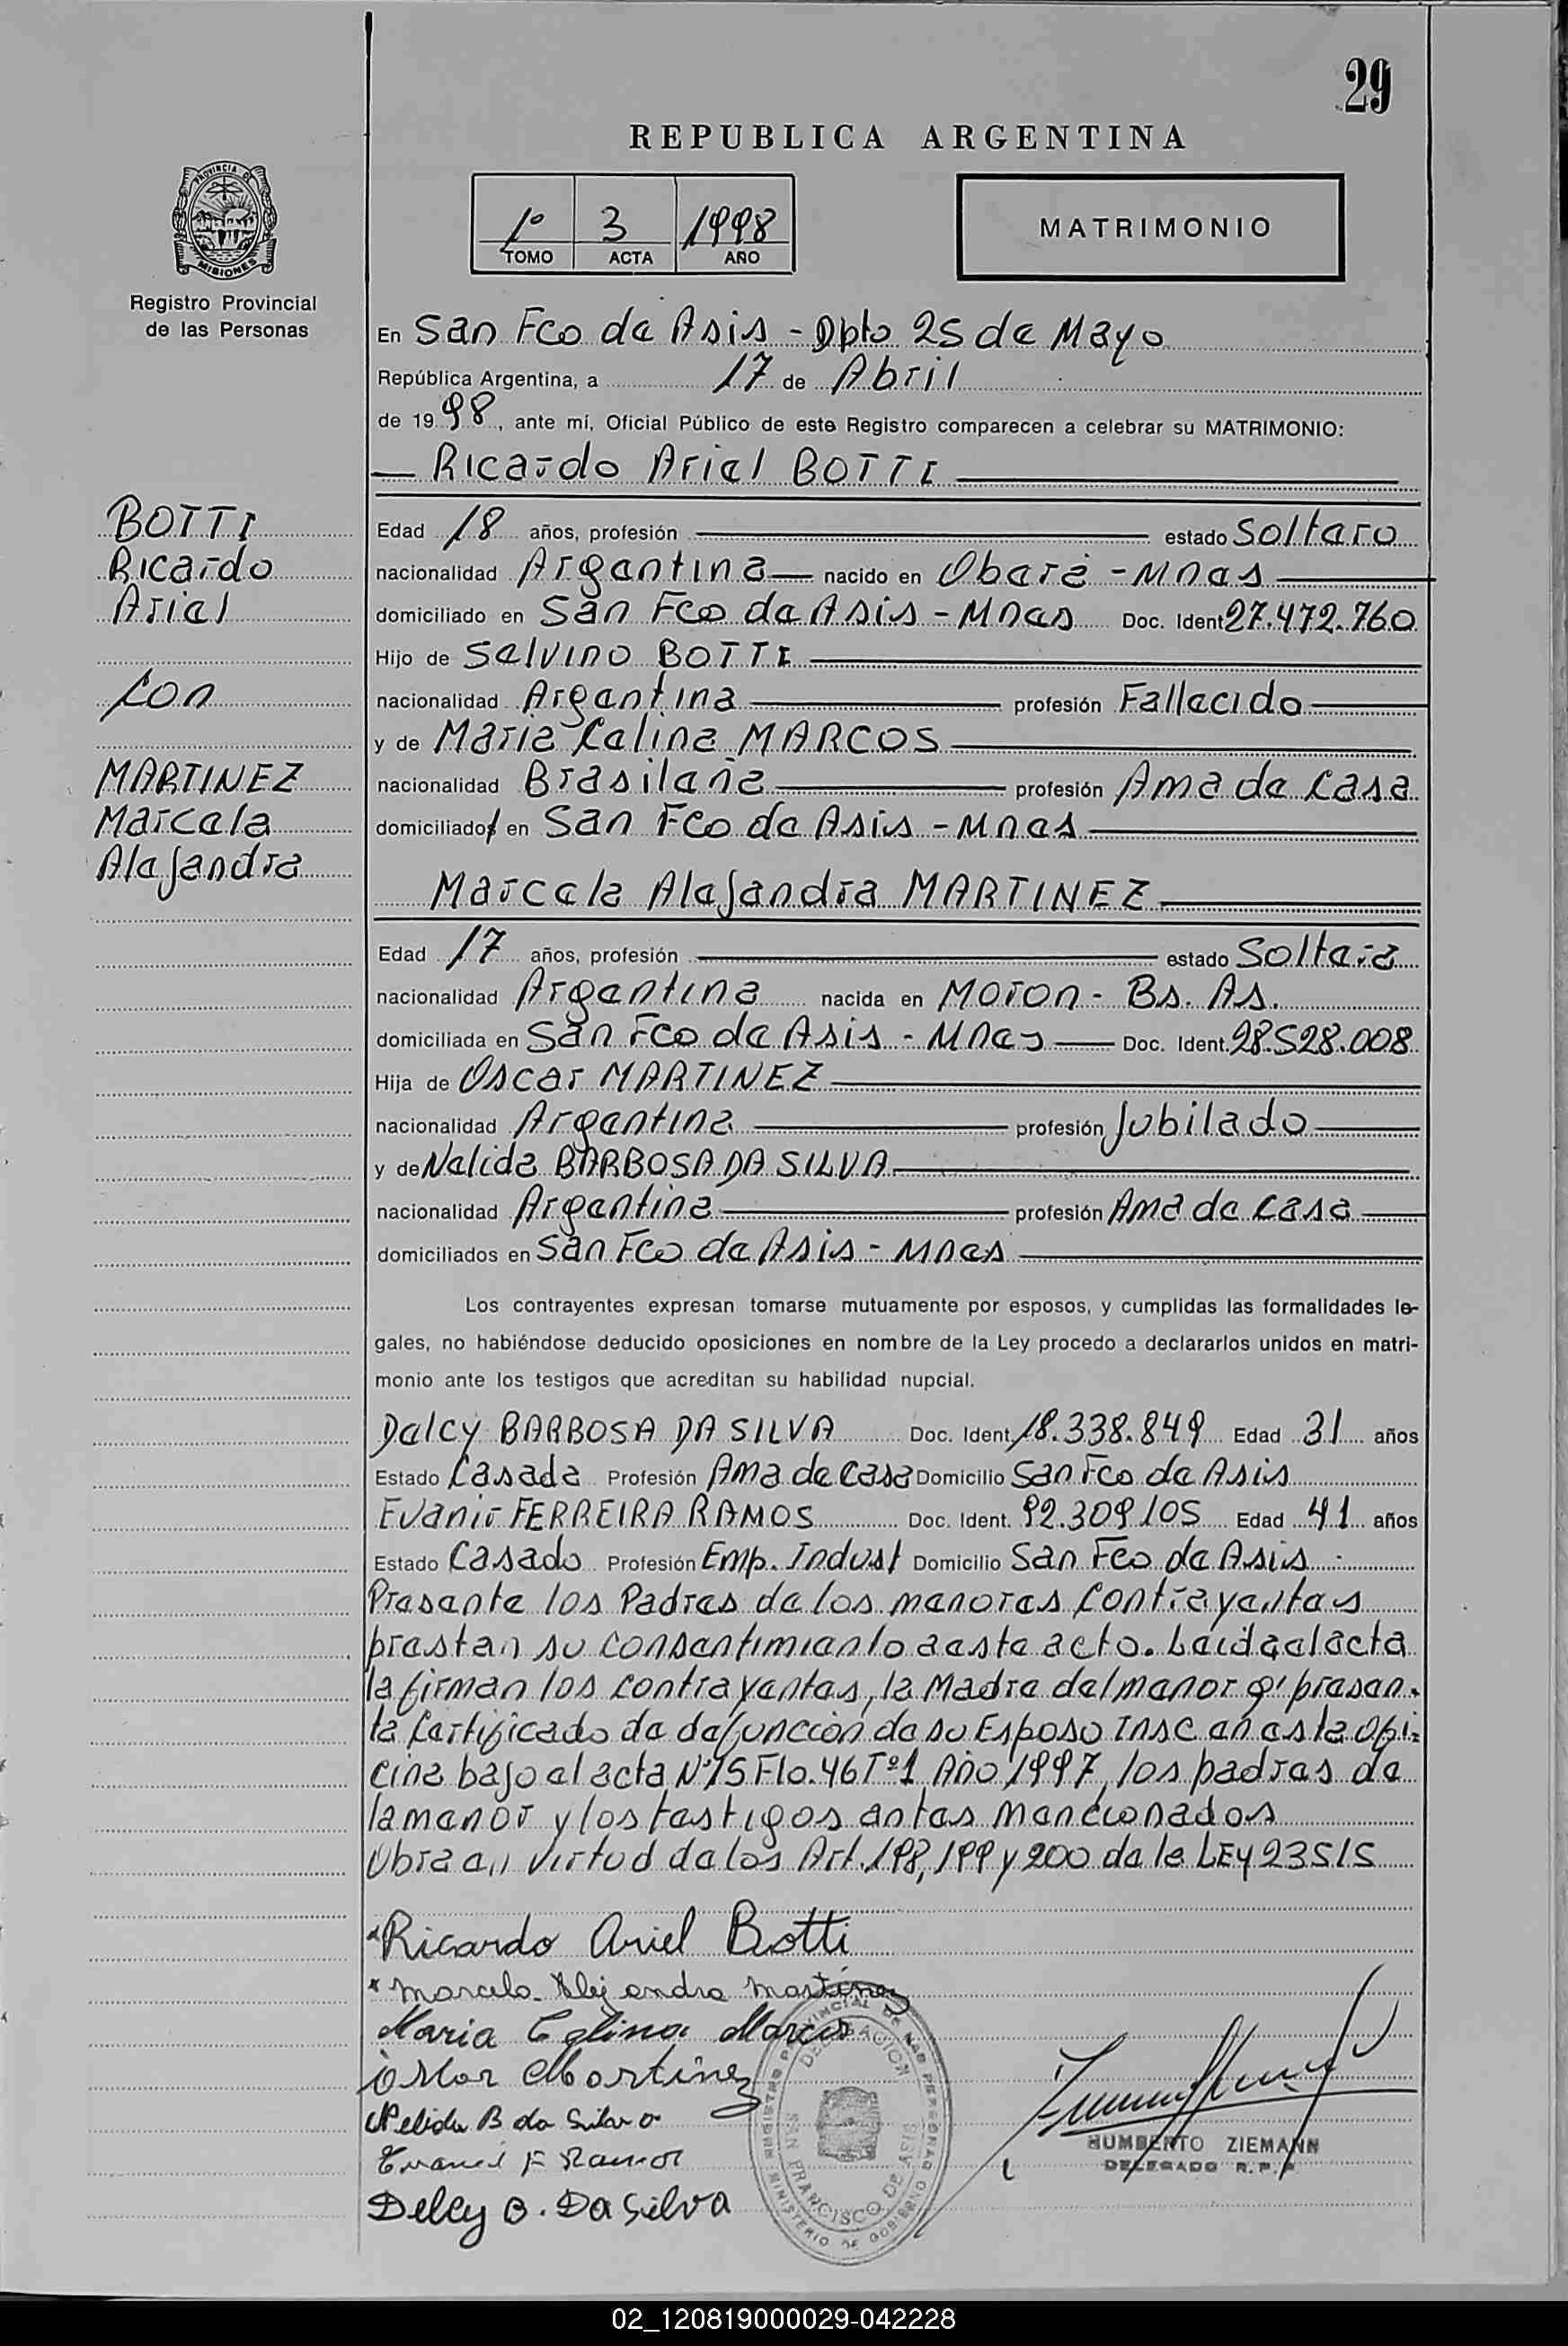 29
REPUBLICA ARGENTINA
PROVINCIA DE
MISIONES
Registro Provincial
de las Personas
1º 3 1998
TOMO ACTA AÑO
MATRIMONIO
En San Fco de Asis - Dpto 25 de Mayo
República Argentina, a 17 de Abril
de 1998, ante mí, Oficial Público de este Registro comparecen a celebrar su MATRIMONIO:
Ricardo Ariel BOTTI
BOTTI
Ricardo
Ariel
con
MARTINEZ
Marcela
Alejandra
Edad 18 años, profesión estado Soltero
nacionalidad Argentina nacido en Oberá - Mnes
domiciliado en San Fco de Asis - Mnes Doc. Ident 27.472.760
Hijo de Selvino BOTTI
nacionalidad Argentina profesión Fallecido
y de Maria Celina MARCOS
nacionalidad Brasileña profesión Ama de Casa
domiciliados en San Fco de Asis - Mnes
Marcela Alejandra MARTINEZ
Edad 17 años, profesión estado Soltera
nacionalidad Argentina nacida en Moron - Bs. As.
domiciliada en San Fco de Asis - Mnes Doc. Ident. 28.528.008
Hija de Oscar MARTINEZ
nacionalidad Argentina profesión Jubilado
y de Nelida BARBOSA DA SILVA
nacionalidad Argentina profesión Ama de Casa
domiciliados en San Fco de Asis - Mnes
Los contrayentes expresan tomarse mutuamente por esposos, y cumplidas las formalidades le-
gales, no habiéndose deducido oposiciones en nombre de la Ley procedo a declararlos unidos en matri-
monio ante los testigos que acreditan su habilidad nupcial.
Delcy BARBOSA DA SILVA Doc. Ident. 18.338.849 Edad 31 años
Estado Casada Profesión Ama de Casa Domicilio San Fco de Asis
Evanir FERREIRA RAMOS Doc. Ident. 92.309105 Edad 41 años
Estado Casado Profesión Emp. Indust Domicilio San Fco de Asis
Presente los Padres de los menores Contrayentes
prestan su consentimiento a este acto. Leida el acta
la firman los contrayentes, la Madre del menor q' presen-
ta Certificado de defunción de su Esposo Insc. en esta Ofi-
cina bajo el acta Nº 15 Flo. 46 Tº 1 Año 1997, los padres de
la menor y los testigos antes mencionados
Obra en virtud de los Art. 198, 199 y 200 de la LEY 23515
Ricardo Ariel Botti
Marcela Alejandra Martinez
Maria Celina Marcos
Oscar Martinez
Nelida B da Silva
Evanir F Ramos
Delcy B. Da Silva
REGISTRO PROVINCIAL DE LAS PERSONAS
DELEGACION
SAN FRANCISCO DE ASIS
MINISTERIO DE GOBIERNO
HUMBERTO ZIEMANN
DELEGADO R.P.P
02_120819000029-042228